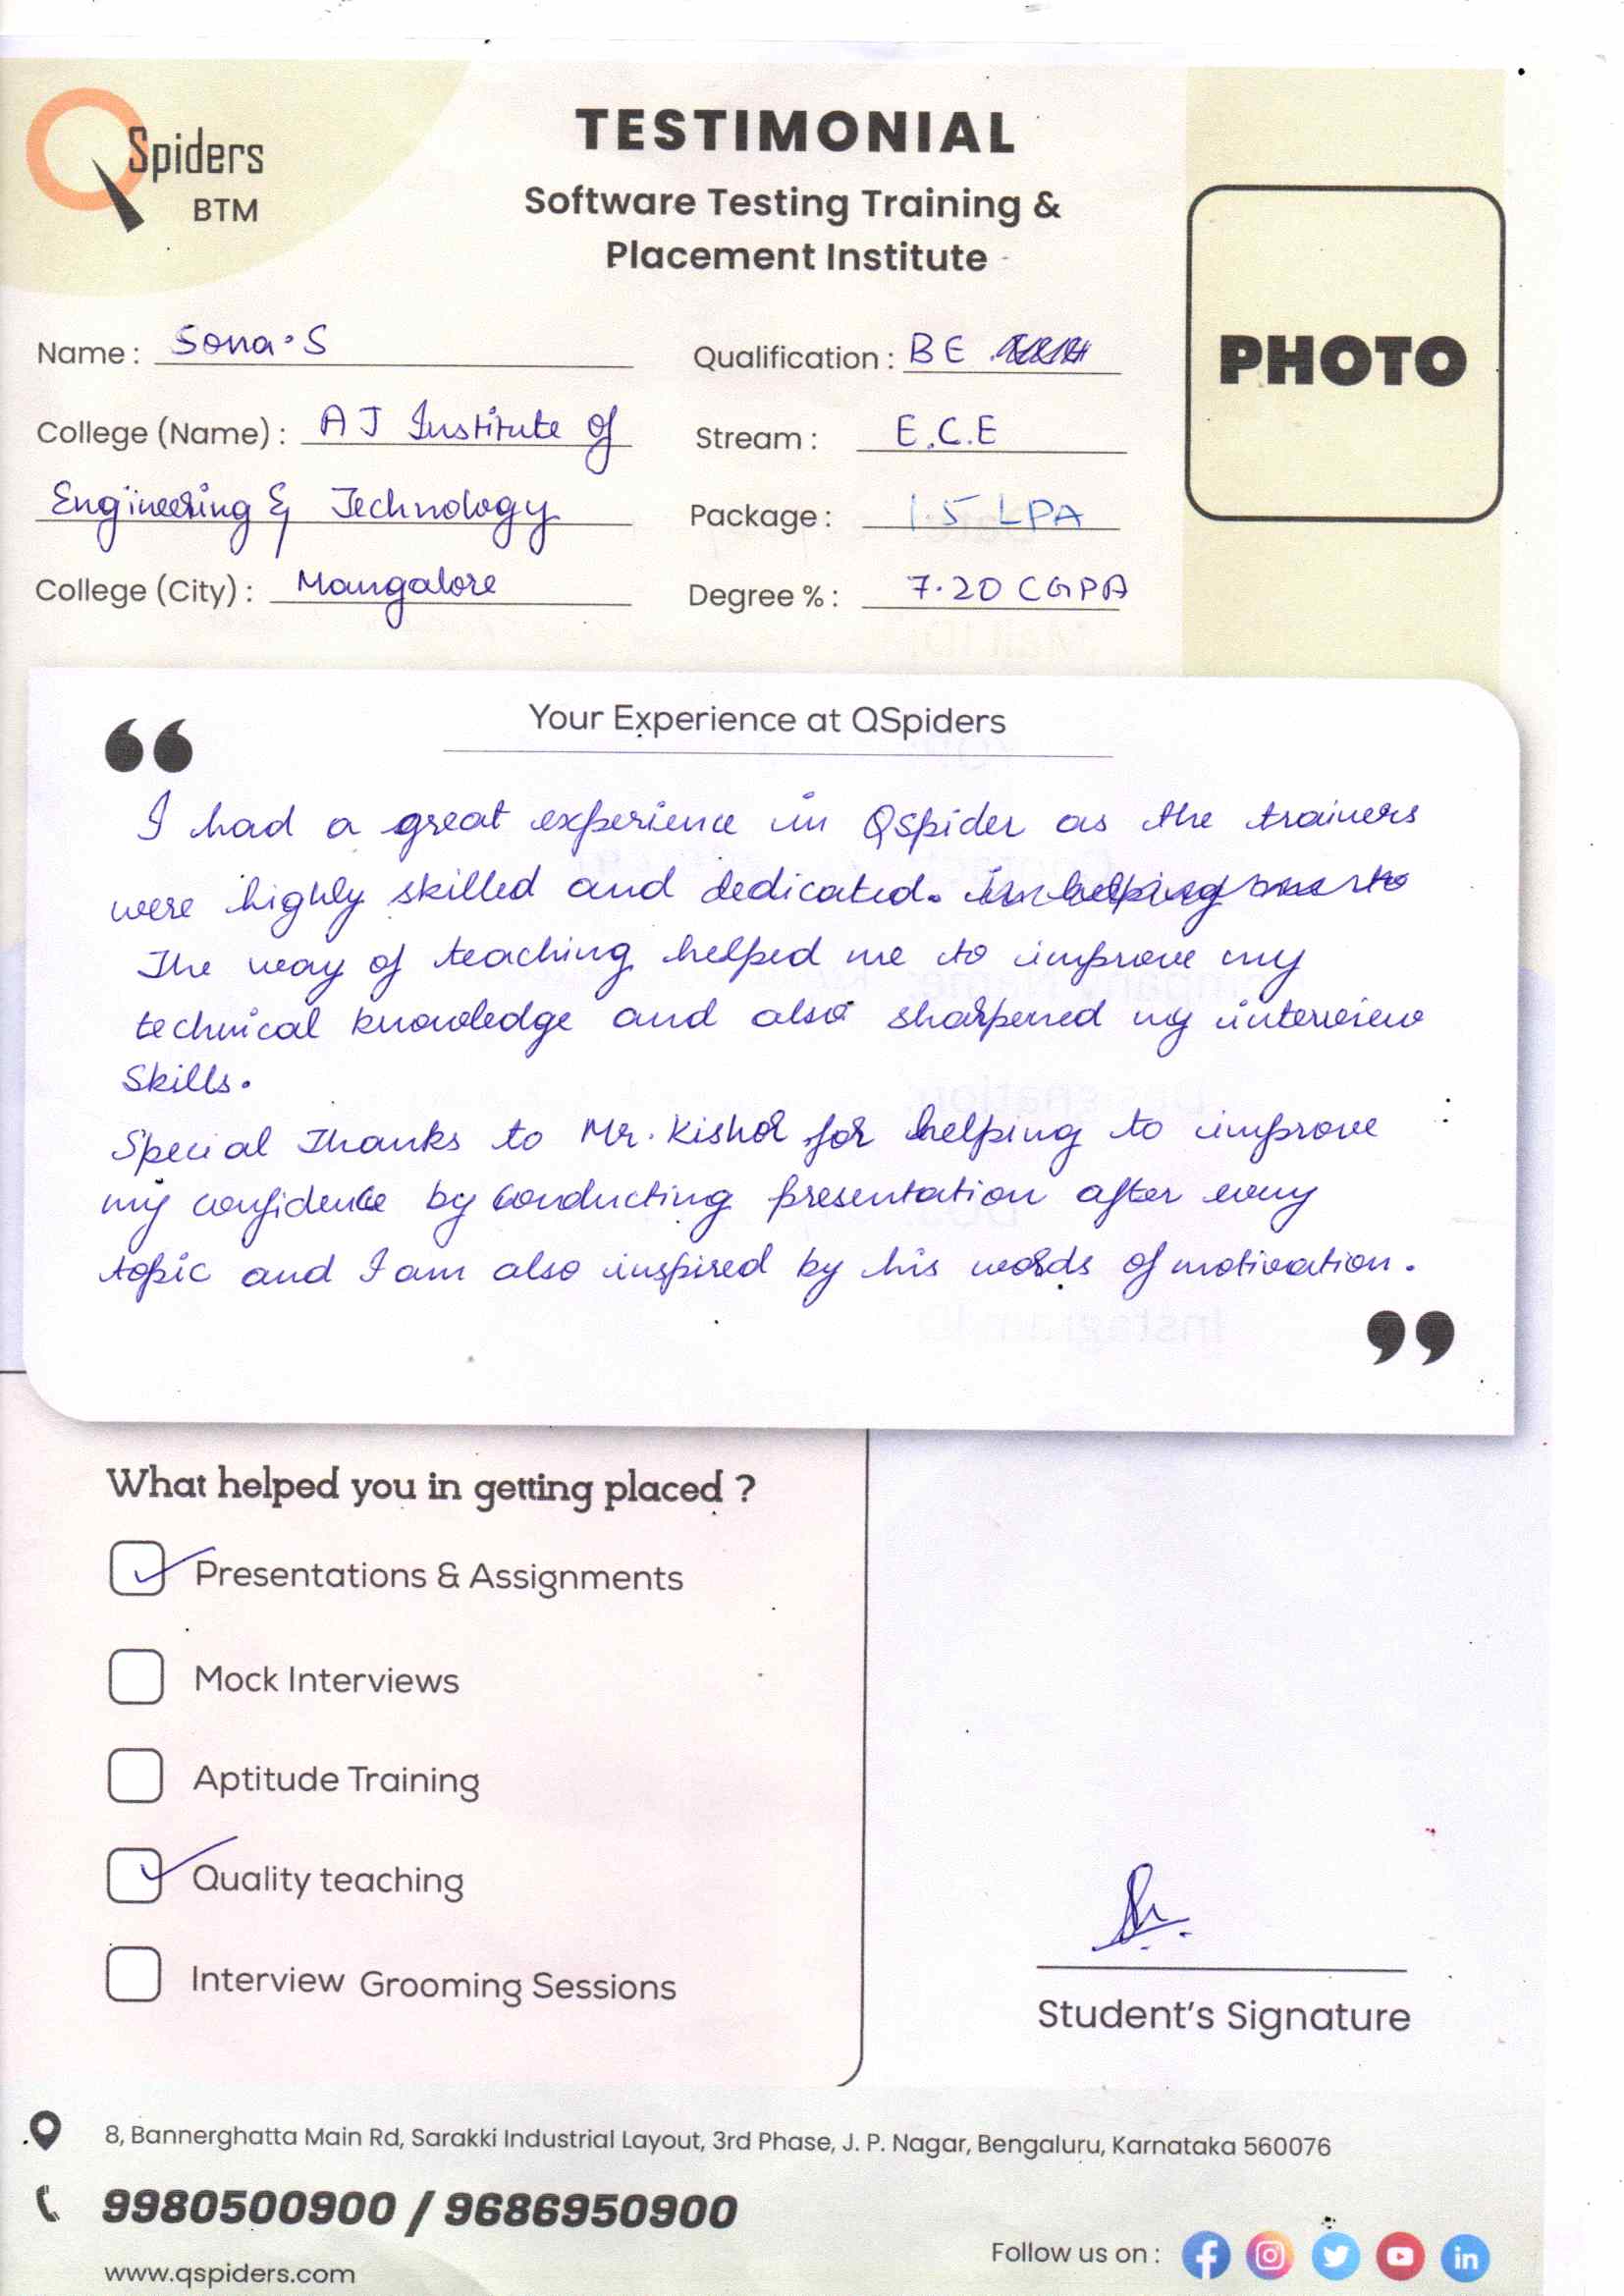 QSpiders
BTM
TESTIMONIAL
Software Testing Training &
Placement Institute
PHOTO
Name : Sona.S
Qualification : BE
College (Name) : AJ Institute of
Stream : E.C.E
Engineering & Technology
Package : 1.5 LPA
College (City) : Mangalore
Degree % : 7.20 CGPA
Your Experience at QSpiders
“
I had a great experience in Qspider as the trainers
were highly skilled and dedicated. in helping me to
The way of teaching helped me to improve my
technical knowledge and also sharpened my interview
Skills.
Special Thanks to Mr. Kishor for helping to improve
my confidence by conducting presentation after every
topic and I am also inspired by his words of motivation.
”
What helped you in getting placed ?
Presentations & Assignments
Mock Interviews
Aptitude Training
Quality teaching
Interview Grooming Sessions
Student's Signature
8, Bannerghatta Main Rd, Sarakki Industrial Layout, 3rd Phase, J. P. Nagar, Bengaluru, Karnataka 560076
9980500900 / 9686950900
www.qspiders.com
Follow us on :